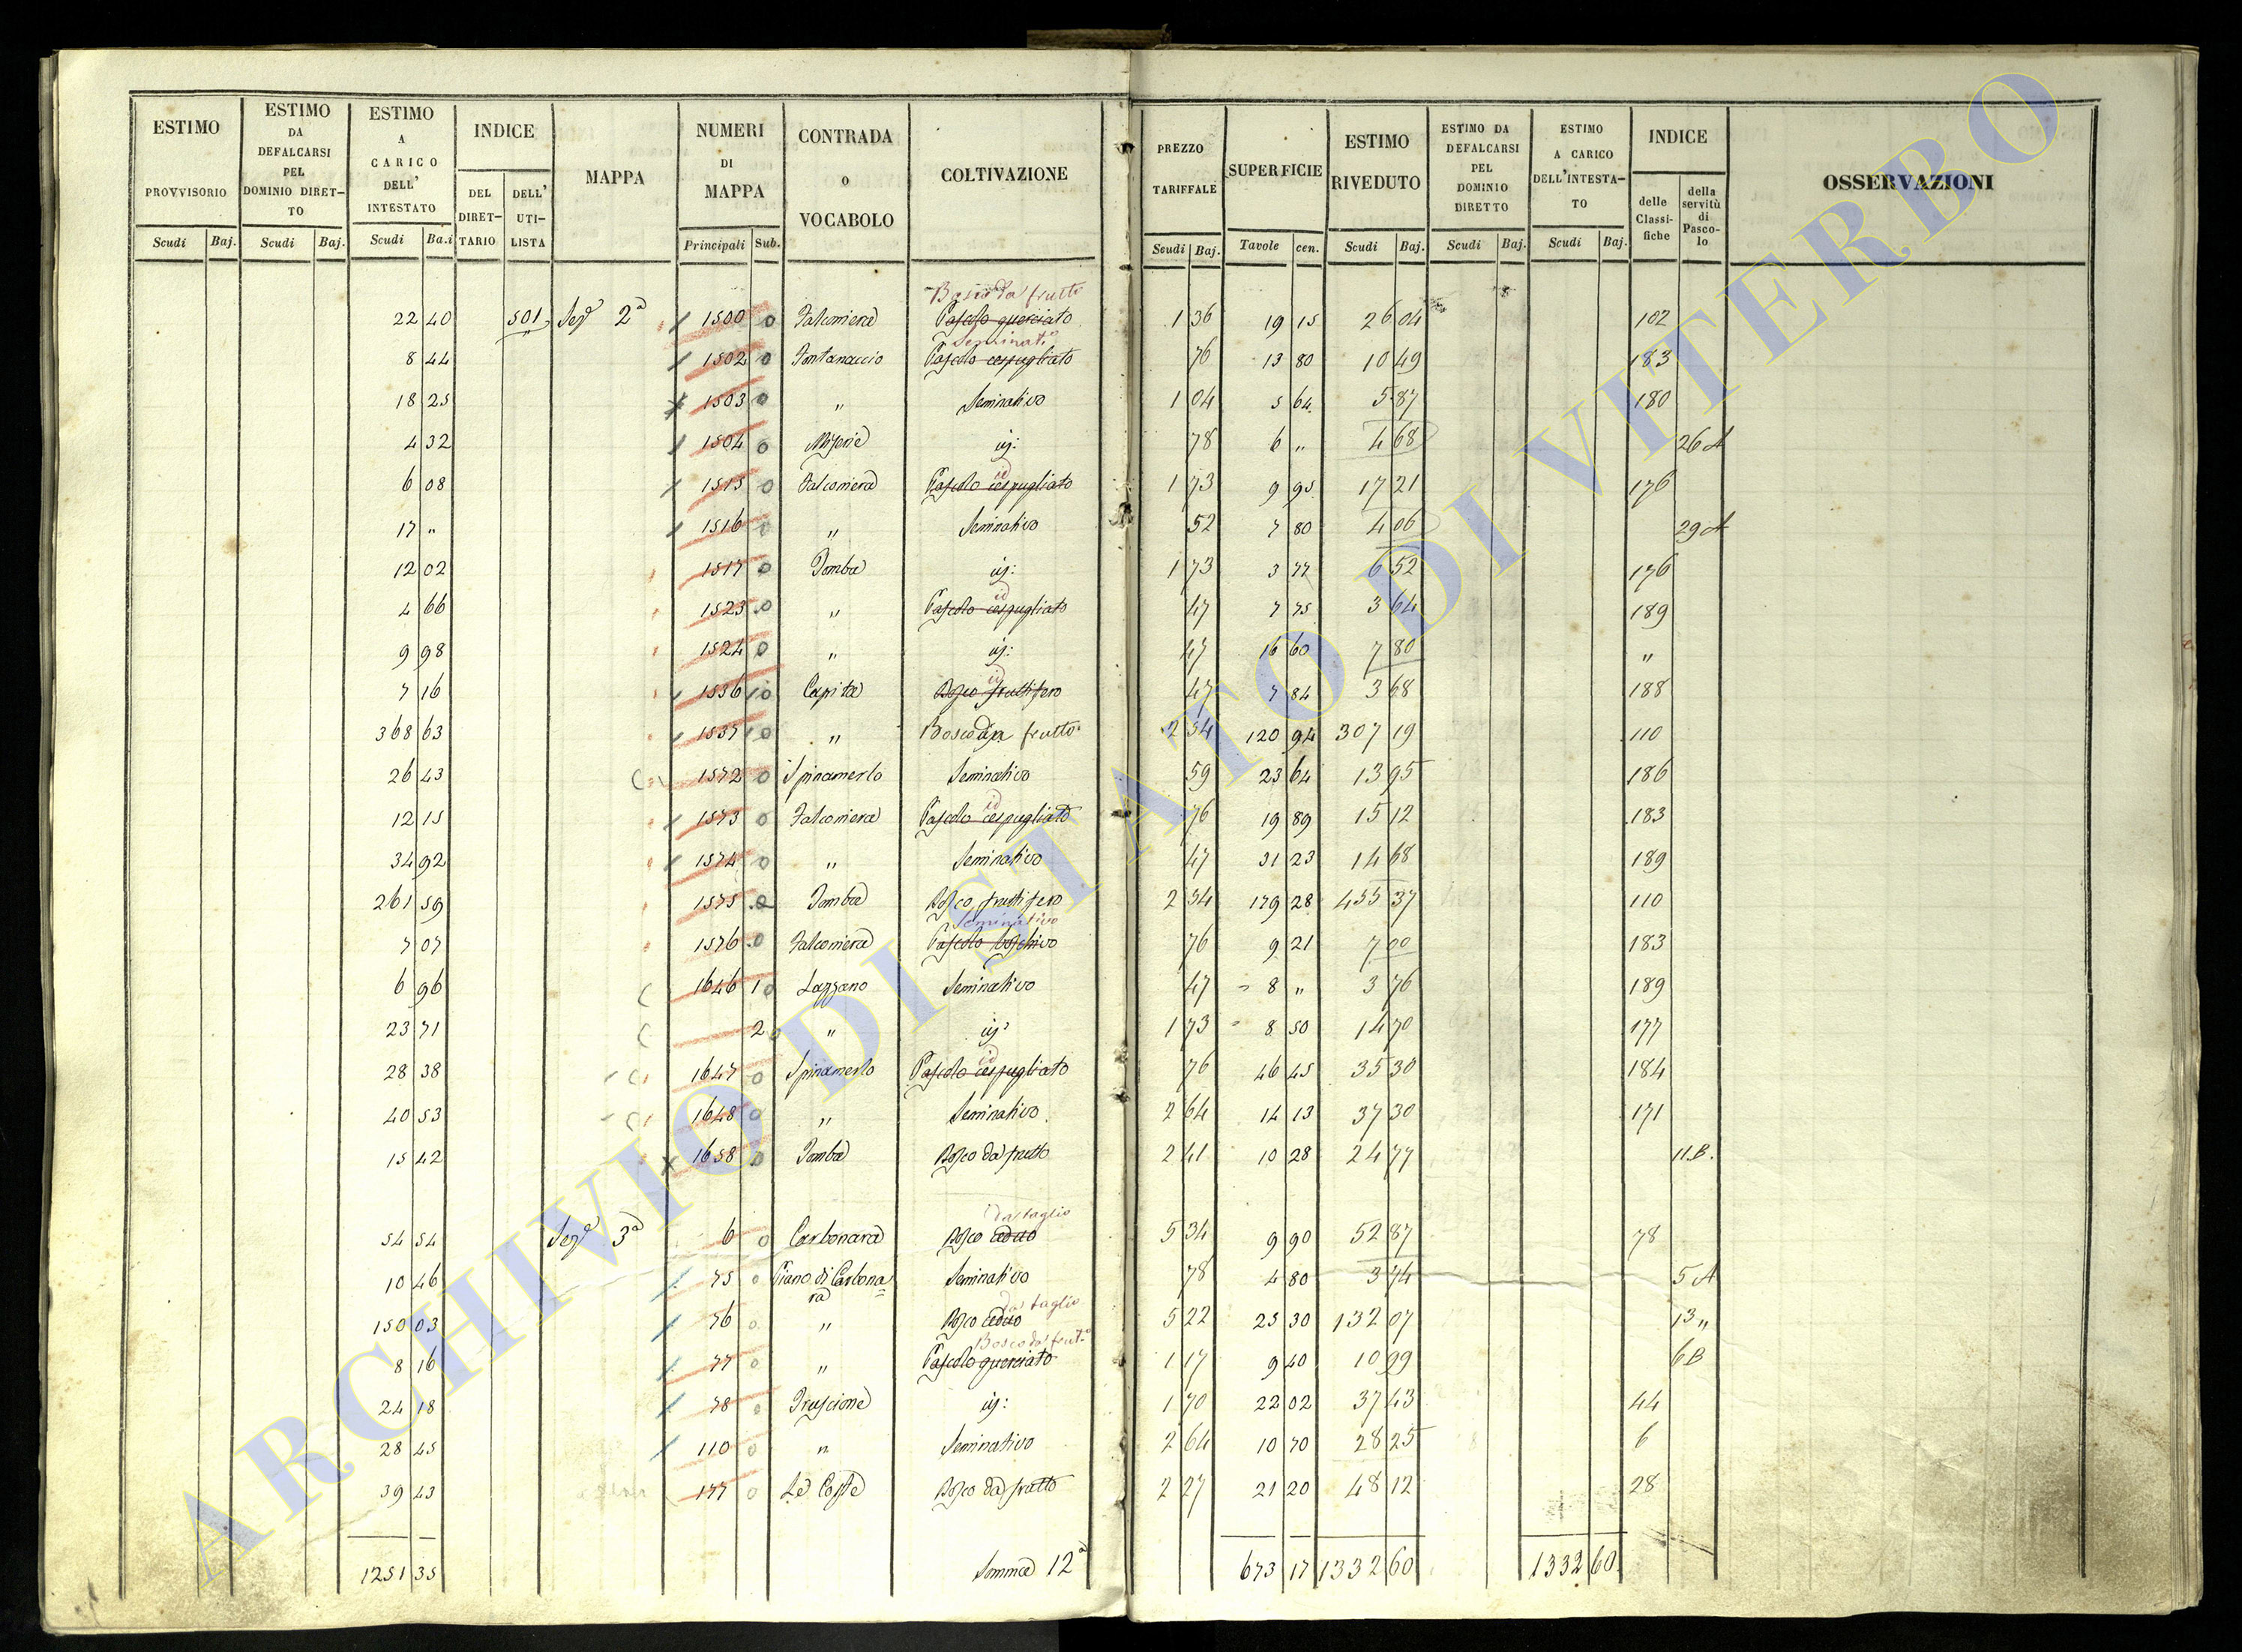 ESTIMO PROVVISORIO
ESTIMO DA DEFALCARSI PEL DOMINIO DIRET-TO
ESTIMO A CARICO DELL' INTESTATO
INDICE
DEL DIRET-TARIO
DELL' UTI-LISTA
MAPPA
NUMERI DI MAPPA
CONTRADA O VOCABOLO
COLTIVAZIONE
PREZZO TARIFFALE
SUPERFICIE
ESTIMO RIVEDUTO
ESTIMO DA DEFALCARSI PEL DOMINIO DIRETTO
ESTIMO A CARICO DELL'INTESTA-TO
INDICE
delle Classi-fiche
della servitù di Pasco-lo
OSSERVAZIONI
Scudi Baj. Scudi Baj. Scudi Ba.i Principali Sub. Scudi Baj. Tavole cen. Scudi Baj. Scudi Baj. Scudi Baj.
Bosco da frutto
22 40 501 Sezᵉ 2ª 1500 0 Falconiera Pascolo querciato 1 36 19 15 26 04 102
Seminatᵒ
8 44 1502 0 Fontanaccio Pascolo cespugliato 76 13 80 10 49 183
18 25 1503 0 " Seminativo 1 04 5 64 5 87 180
4 32 1504 0 id: 78 6 " 4 68 26 A
id
6 08 1515 0 Falconiera Pascolo cespugliato 1 73 9 95 17 21 176
17 " 1516 0 " Seminativo 52 7 80 4 06 29 A
12 02 1517 0 Tomba id: 1 73 3 77 6 52 176
id
4 66 1523 0 " Pascolo cespugliato 47 7 75 3 64 189
9 98 1524 0 " id: 47 16 60 7 80 "
id
7 16 1536 10 Capita Bosco fruttifero 47 7 84 3 68 188
368 63 1537 10 " Bosco da frutto 2 54 120 94 307 19 110
26 43 1572 0 Spinamerlo Seminativo 59 23 64 13 95 186
id
12 15 1573 0 Falconiera Pascolo cespugliato 76 19 89 15 12 183
34 92 1574 0 " Seminativo 47 31 23 14 68 189
261 59 1575 0 Tomba Bosco fruttifero 2 54 179 28 455 37 110
Seminativo
7 07 1576 0 Falconiera Pascolo boschivo 76 9 21 7 00 183
6 96 1646 1 0 Lazzano Seminativo 47 8 " 3 76 189
23 71 2 0 " id: 1 73 8 50 14 70 177
id
28 38 1647 0 Spinamerlo Pascolo cespugliato 76 46 45 35 30 184
40 53 1648 0 " Seminativo 2 64 14 13 37 30 171
15 42 1658 0 Tomba Bosco da frutto 2 41 10 28 24 77 11 B.
da taglio
54 54 Sezᵉ 3ª 6 0 Carbonara Bosco ceduo 5 34 9 90 52 87 78
10 46 75 0 Piano di Carbona= Seminativo 78 4 80 3 74 5 A
ra
da taglio
150 03 76 0 " Bosco ceduo 5 22 25 30 132 07 13 "
Bosco da frutᵒ
8 16 77 0 " Pascolo querciato 1 17 9 40 10 99 6 B
24 18 78 0 Truscione id: 1 70 22 02 37 43 44
28 45 110 0 " Seminativo 2 64 10 70 28 25 6
39 43 177 0 Le Coste Bosco da frutto 2 27 21 20 48 12 28
1251 35 Somma 12ª 673 17 1332 60 1332 60
ARCHIVIO DI STATO DI VITERBO